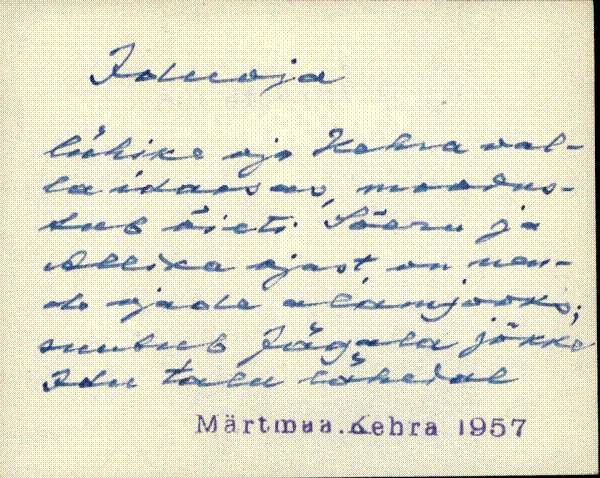 Iduoja
lühike oja Kehra val-
la idaosas, moodus-
tub õieti Sõeru ja
Allika ojast, on nen-
de ojade alamjooks;
suubub Jägala jõkke
Idu talu lähedal
Märtmaa.Kehra 1957